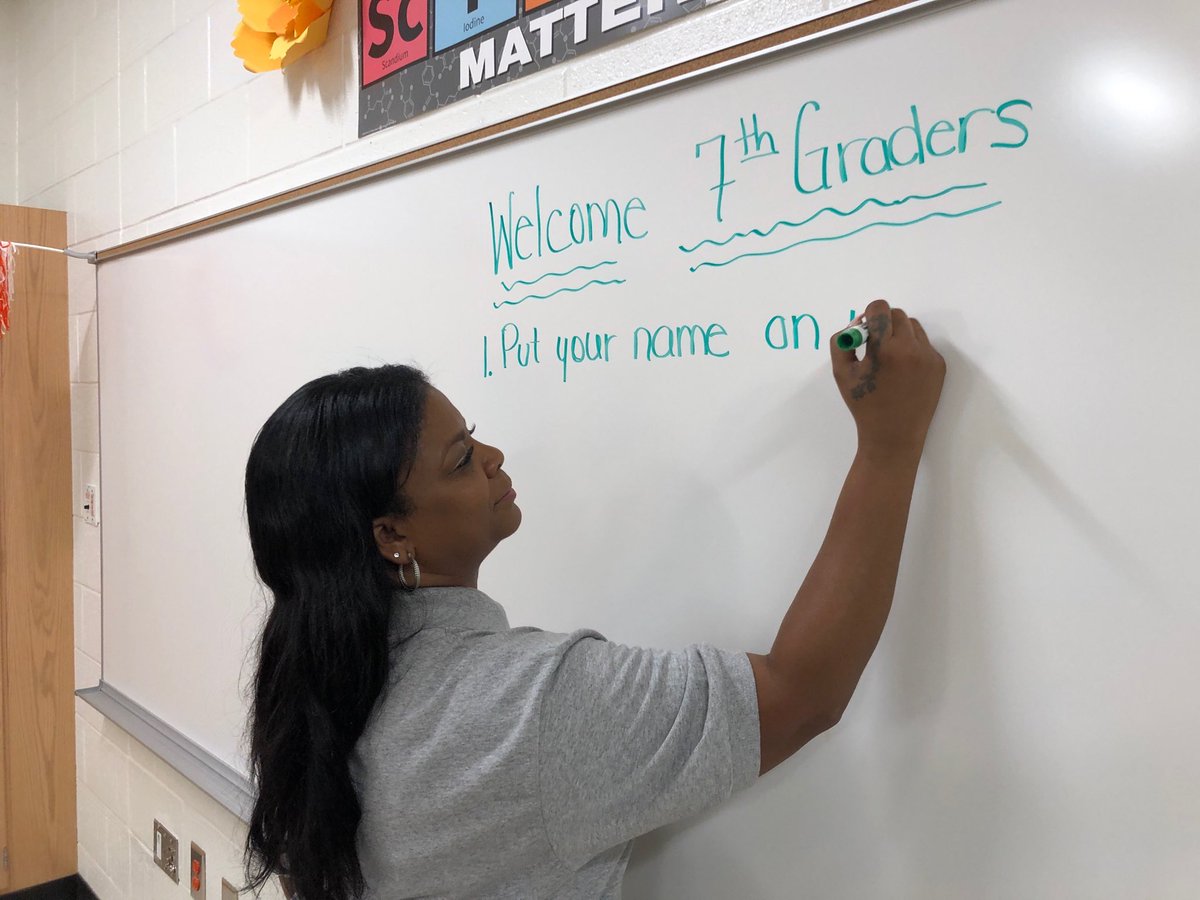 Sc
Scandium
Iodine
MATTE
Welcome 7th Graders
1. Put your name on